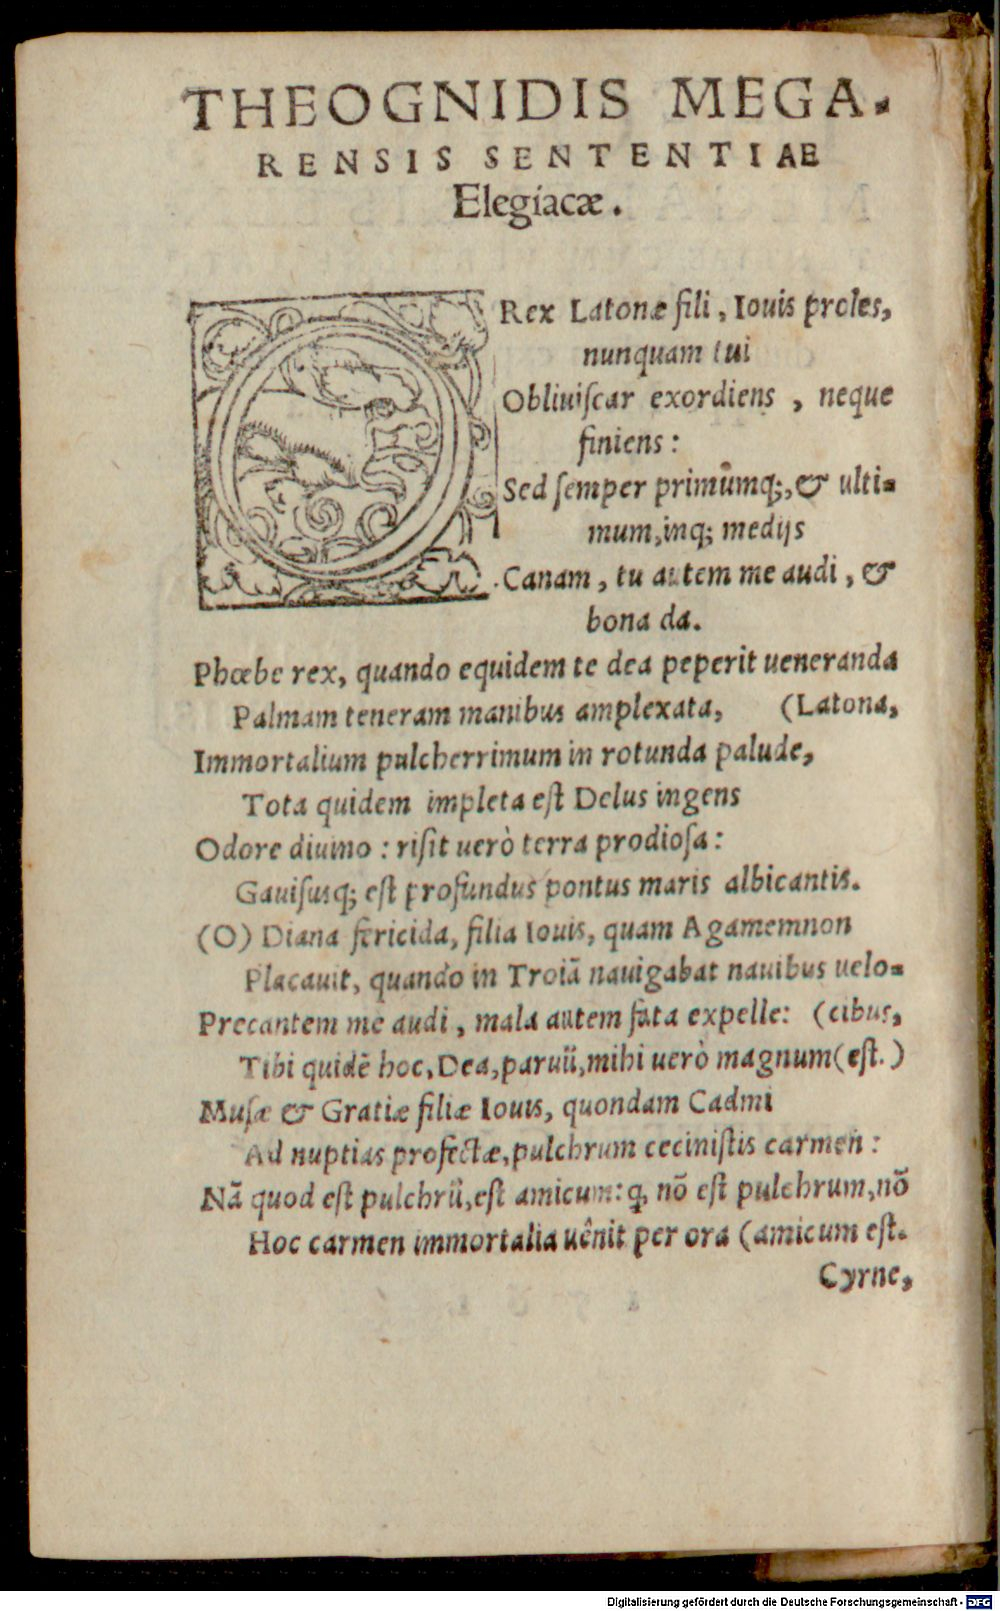 THEOGNIDIS MEGA-
RENSIS SENTENTIAE
Elegiacæ.
O Rex Latonæ fili, Iouis proles,
nunquam tui
Obliuiſcar exordiens, neque
finiens:
Sed ſemper primūmq;, & ulti-
mum, inq; medijs
Canam, tu autem me audi, &
bona da.
Phœbe rex, quando equidem te dea peperit ueneranda
Palmam teneram manibus amplexata, (Latona,
Immortalium pulcherrimum in rotunda palude,
Tota quidem impleta eſt Delus ingens
Odore diuino: riſit uerò terra prodioſa:
Gauiſusq; eſt profundus pontus maris albicantis.
(O) Diana fericida, filia Iouis, quam Agamemnon
Placauit, quando in Troiā nauigabat nauibus uelo-
Precantem me audi, mala autem fata expelle: (cibus,
Tibi quidē hoc, Dea, paruū, mihi uerò magnum (eſt.)
Muſæ & Gratiæ filiæ Iouis, quondam Cadmi
Ad nuptias profectæ, pulchrum ceciniſtis carmen:
Nā quod eſt pulchrū, eſt amicum: ꝙ nō eſt pulchrum, nō
Hoc carmen immortalia uênit per ora (amicum eſt.
Cyrne,
Digitalisierung gefördert durch die Deutsche Forschungsgemeinschaft - DFG